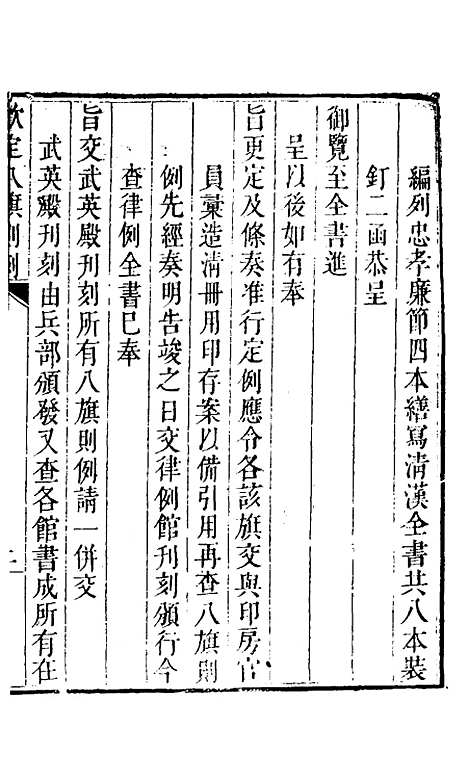 編列忠孝廉節四本繕寫清漢全書共八本裝
釘二函恭呈
御覽至全書進
呈以後如有奉
旨更定及條奏准行定例應令各該旗交與印房官
員彙造清冊用印存案以備引用再查八旗則
例先經奏明告竣之日交律例館刊刻頒行今
查律例全書巳奉
旨交武英殿刊刻所有八旗則例請一併交
武英殿刊刻由兵部頒發又查各館書成所有在
欽定八旗則例